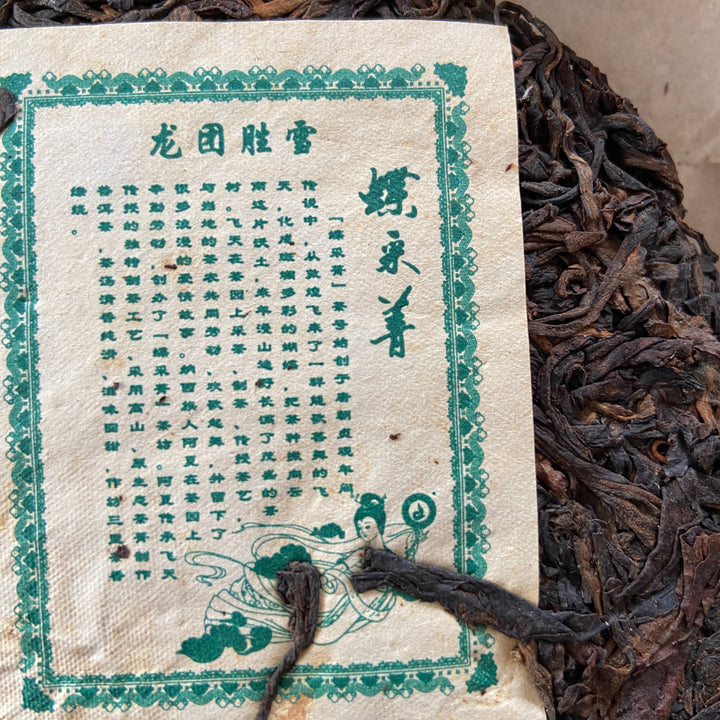 龙团胜雪
蝶采菁
「蝶采菁」茶号始创于唐朝贞观年间
传说中，从敦煌飞来了一群能歌善舞的飞
天，化成斑斓多彩的蝴蝶，把茶种撒向云
南这片沃土，来年漫山遍野长满了茂盛的茶
树。飞天在茶园上采茶、制茶、传授茶艺，
与当地的茶农共同劳动，欢歌起舞，并留下了
很多浪漫的爱情故事。纳西族人阿夏在茶园上
辛勤劳动，创办了「蝶采菁」茶坊。阿夏传承飞天
传授的独特制茶工艺，采用高山、原生态茶菁制作
普洱茶，茶汤清香纯滑，滋味回甜，